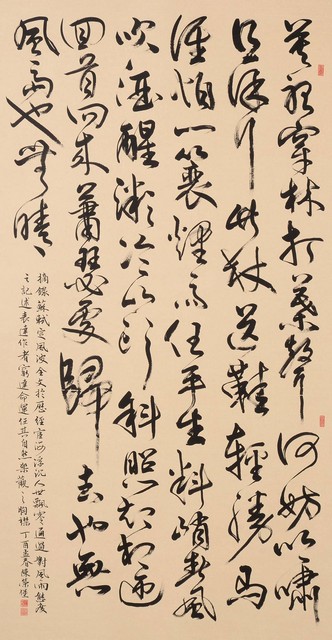 莫聽穿林打葉聲何妨吟嘯
且徐行竹杖芒鞋輕勝馬
誰怕一蓑煙雨任平生料峭春風
吹酒醒微冷山頭斜照卻相迎
回首向來蕭瑟處歸去也無
風雨也無晴
摘錄蘇軾定風波全文於歷經宦海浮沉人世飄零通過對風雨態度
之記述表達作者窮達命運任其自然樂觀之胸襟丁酉孟春陳榮